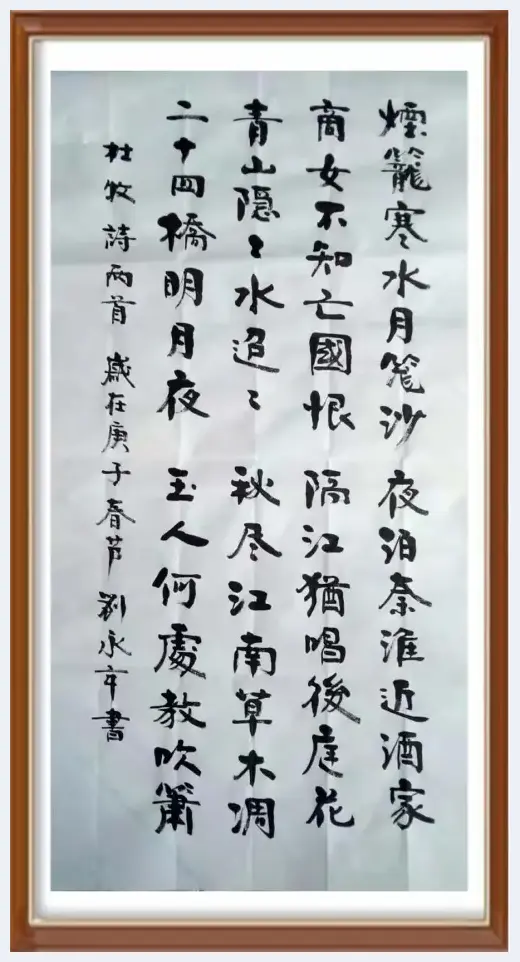 煙籠寒水月笼沙 夜泊秦淮近酒家
商女不知亡國恨 隔江猶唱後庭花
青山隐〻水迢〻 秋尽江南草木凋
二十四橋明月夜 玉人何處教吹簫
杜牧詩兩首 歲在庚子春节 劉永年書